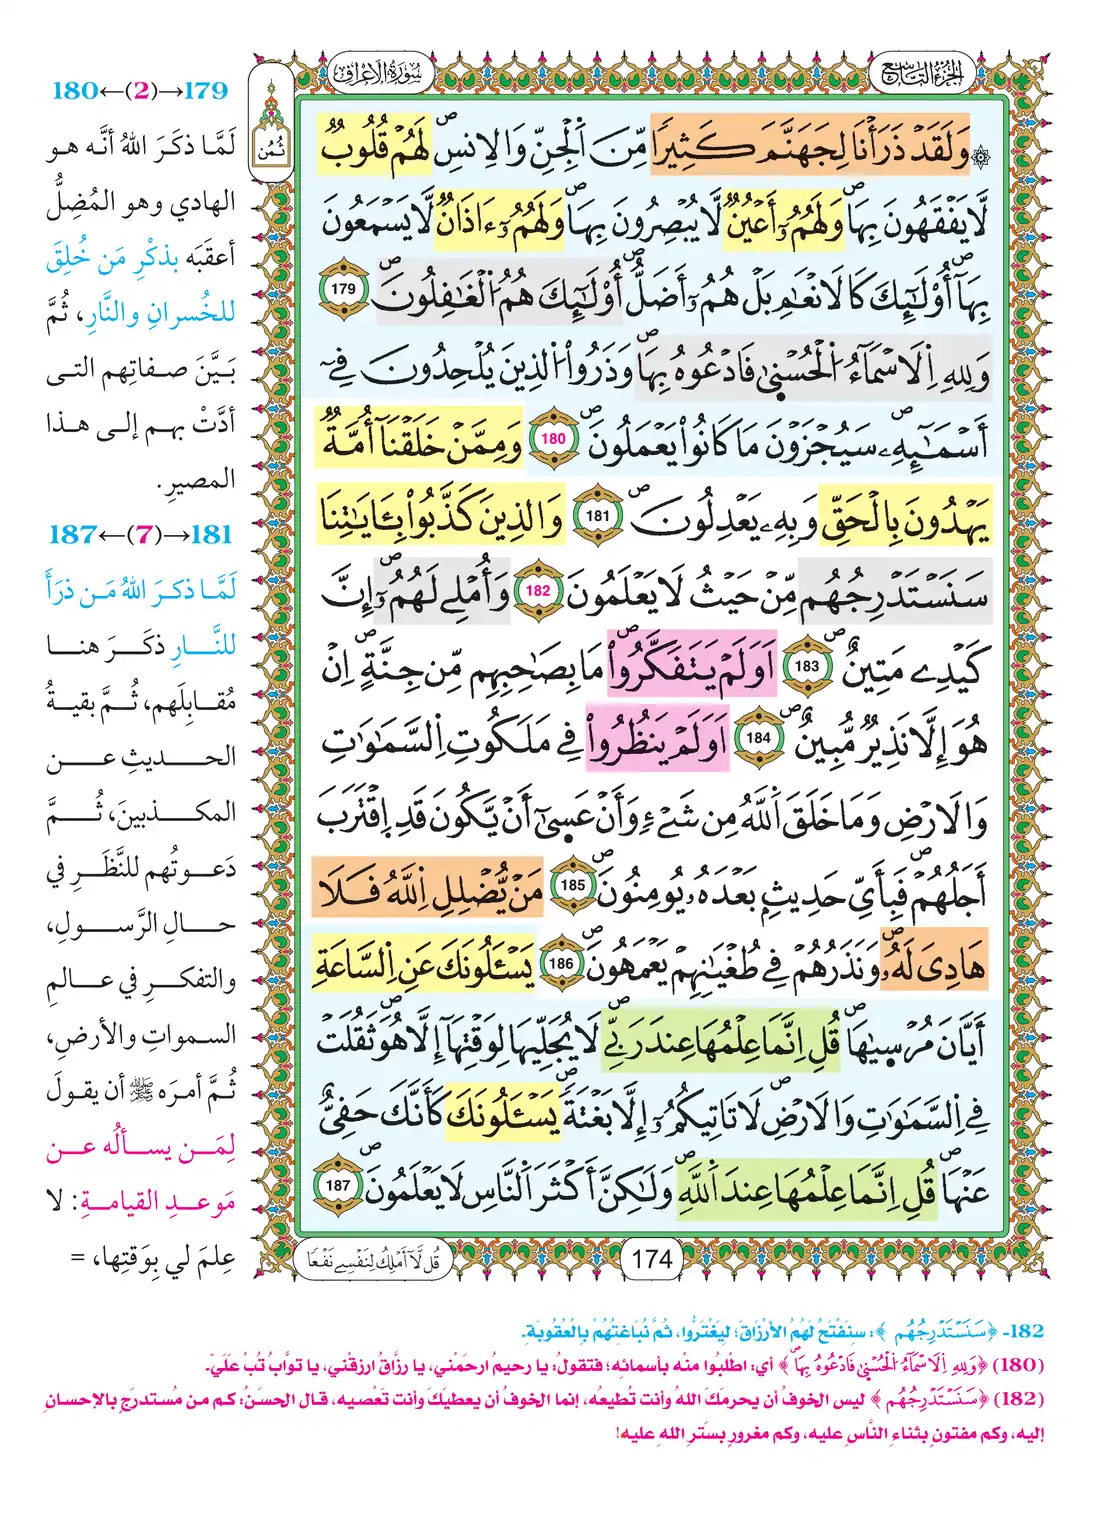 الجزء التاسع
سورة الاعراف
ثمن
۞ وَلَقَدْ ذَرَأْنَا لِجَهَنَّمَ كَثِيراٗ مِّنَ اَ۬لْجِنِّ وَالِانسِۖ لَهُمْ قُلُوبٞ
لَّا يَفْقَهُونَ بِهَاۖ وَلَهُمُۥٓ أَعْيُنٞ لَّا يُبْصِرُونَ بِهَاۖ وَلَهُمُۥٓ ءَاذَانٞ لَّا يَسْمَعُونَ
بِهَآۖ أُوْلَٰٓئِكَ كَالَانْعَٰمِ بَلْ هُمُۥٓ أَضَلُّۖ أُوْلَٰٓئِكَ هُمُ اُ۬لْغَٰفِلُونَۖ 179
وَلِلهِ اِ۬لَاسْمَآءُ اُ۬لْحُسْن۪يٰ فَادْعُوهُ بِهَاۖ وَذَرُواْ اُ۬لذِينَ يُلْحِدُونَ فِےٓ
أَسْمَٰٓئِهِۦۖ سَيُجْزَوْنَ مَا كَانُواْ يَعْمَلُونَۖ 180 وَمِمَّنْ خَلَقْنَآ أُمَّةٞ
يَهْدُونَ بِالْحَقِّ وَبِهِۦ يَعْدِلُونَۖ 181 وَالذِينَ كَذَّبُواْ بِـَٔايَٰتِنَا
سَنَسْتَدْرِجُهُم مِّنْ حَيْثُ لَا يَعْلَمُونَ 182 وَأُمْلِے لَهُمُۥٓۖ إِنَّ
كَيْدِے مَتِينٌۖ 183 اَوَلَمْ يَتَفَكَّرُواْۖ مَا بِصَٰحِبِهِم مِّن جِنَّةٍۖ اِنْ
هُوَ إِلَّا نَذِيرٞ مُّبِينٌۖ 184 اَوَلَمْ يَنظُرُواْ فِے مَلَكُوتِ اِ۬لسَّمَٰوَٰتِ
وَالَارْضِ وَمَا خَلَقَ اَ۬للَّهُ مِن شَےْءٖ وَأَنْ عَس۪يٰٓ أَنْ يَّكُونَ قَدِ اِ۪قْتَرَبَ
أَجَلُهُمْۖ فَبِأَيِّ حَدِيثِۢ بَعْدَهُۥ يُومِنُونَۖ 185 مَنْ يُّضْلِلِ اِ۬للَّهُ فَلَا
هَادِيَ لَهُۥۖ وَنَذَرُهُمْ فِے طُغْيَٰنِهِمْ يَعْمَهُونَۖ 186 يَسْـَٔلُونَكَ عَنِ اِ۬لسَّاعَةِ
أَيَّانَ مُرْس۪يٰهَاۖ قُلِ اِنَّمَا عِلْمُهَا عِندَ رَبِّےۖ لَا يُجَلِّيهَا لِوَقْتِهَآ إِلَّا هُوَۖ ثَقُلَتْ
فِے اِ۬لسَّمَٰوَٰتِ وَالَارْضِۖ لَا تَاتِيكُمُۥٓ إِلَّا بَغْتَةٗۖ يَسْـَٔلُونَكَ كَأَنَّكَ حَفِيٌّ
عَنْهَاۖ قُلِ اِنَّمَا عِلْمُهَا عِندَ اَ۬للَّهِۖ وَلَٰكِنَّ أَكْثَرَ اَ۬لنَّاسِ لَا يَعْلَمُونَۖ 187
174
قُل لَّآ أَمْلِكُ لِنَفْسِے نَفْعاٗ
179→(2)←180
لَمَّا ذكَرَ اللهُ أنَّه هو
الهادي وهو المُضِلُّ
أعقبَه بذكْرِ مَن خُلِقَ
للخُسرانِ والنَّارِ، ثُمَّ
بَيَّنَ صفاتِهم التي
أدَّتْ بهم إلى هذا
المصيرِ.
181→(7)←187
لَمَّا ذكرَ اللهُ مَن ذرَأَ
للنَّارِ ذكَرَ هنا
مُقابِلَهم، ثُمَّ بقيةُ
الحديثِ عن
المكذبينَ، ثُمَّ
دَعوتُهم للنَّظَرِ في
حالِ الرَّسولِ،
والتفكرِ في عالمِ
السمواتِ والأرضِ،
ثُمَّ أمرَه ﷺ أن يقولَ
لِمَن يسألُه عن
مَوعدِ القيامةِ: لا
عِلمَ لي بِوَقتِها، =
182- ﴿سَنَسْتَدْرِجُهُم﴾: سنَفْتَحُ لَهُمُ الأرْزَاقَ؛ لِيَغْتَرُّوا، ثُمَّ نُبَاغتُهُمْ بِالْعُقُوبَةِ.
(180) ﴿وَلِلهِ اِ۬لَاسْمَآءُ اُ۬لْحُسْن۪يٰ فَادْعُوهُ بِهَاۖ﴾ أي: اطلُبوا منْه بأسمائِه؛ فتقولُ: يا رحيمُ ارحَمْني، يا رزَّاقُ ارزقْني، يا توَّابُ تُبْ عَلَيّ.
(182) ﴿سَنَسْتَدْرِجُهُم﴾ ليس الخوفُ أن يحرمَكَ اللهُ وأنت تُطيعُه، إنما الخوفُ أن يعطيَكَ وأنت تَعْصيه، قال الحسَنُ: كم من مُستدرَجٍ بالإحسانِ
إليه، وكم مفتونٍ بثناءِ النَّاسِ عليه، وكم مغرورٍ بسَترِ اللهِ عليه!